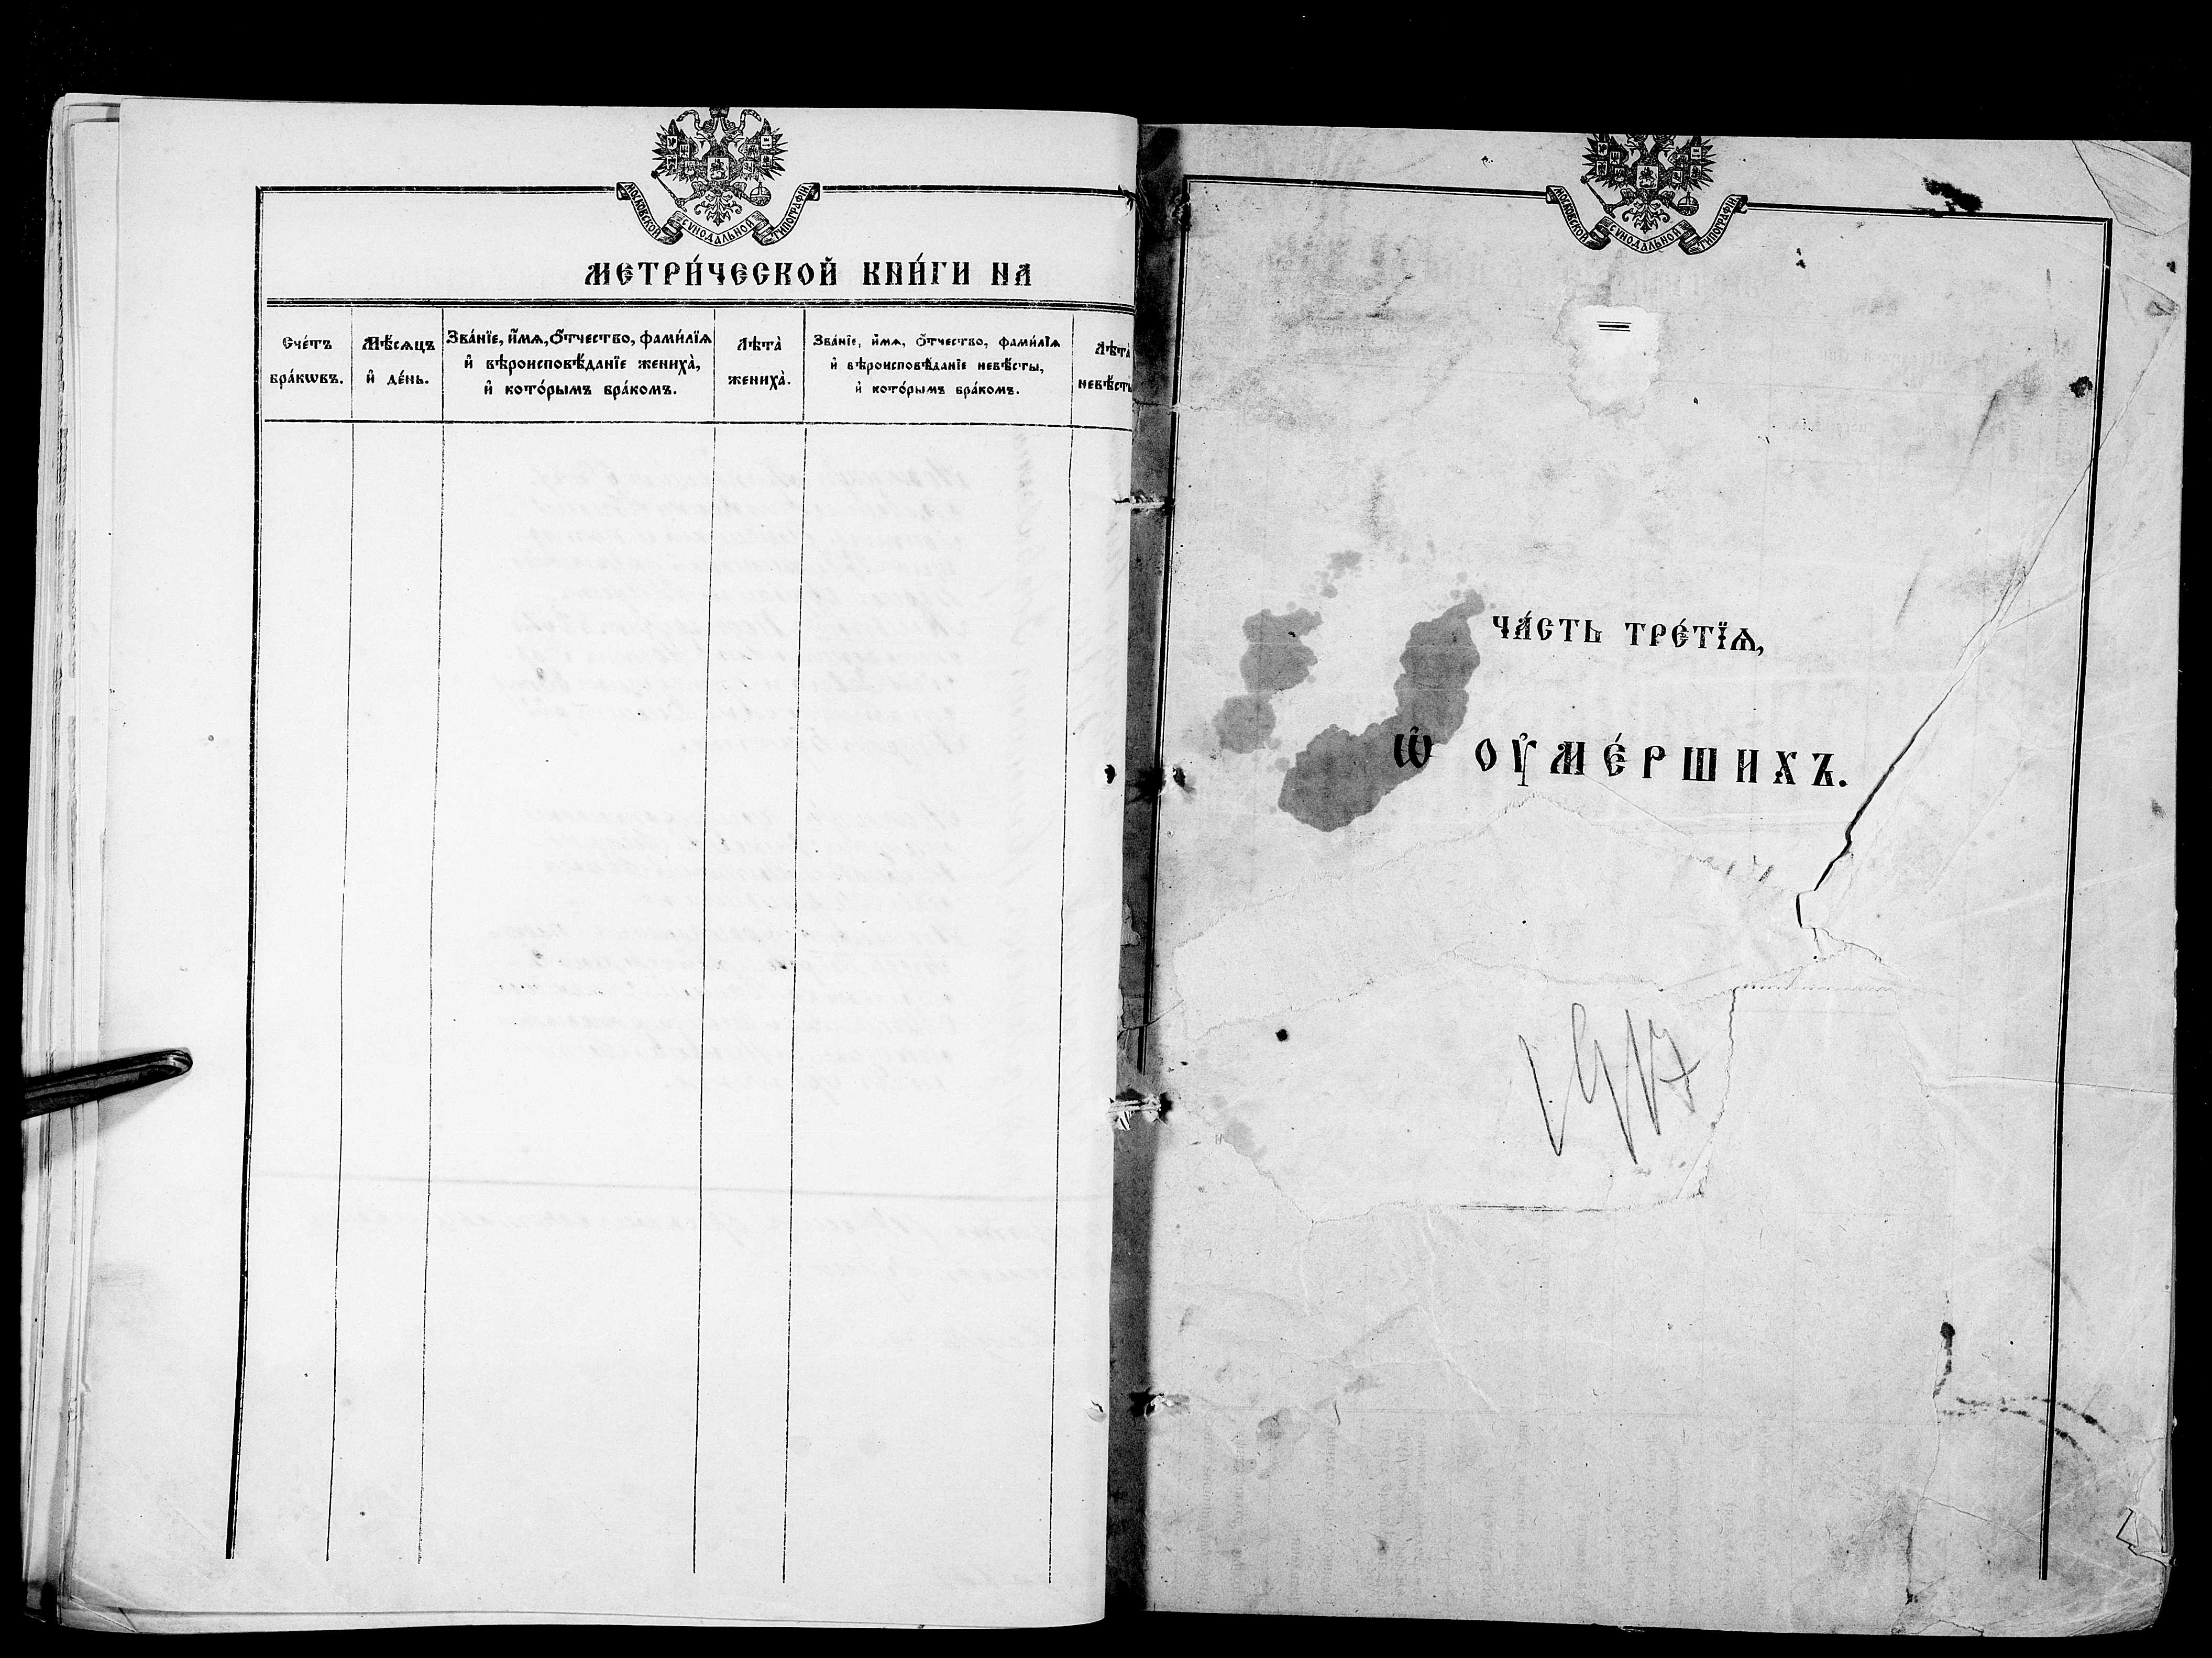 МОСКОВСКОЙ СѴНОДАЛЬНОЙ ТИПОГРАФІИ
МЕТРИ́ЧЕСКОЙ КНИ́ГИ НА
Сче́тъ
бра́кѡвъ.
Мѣ́сяцъ
и҆ де́нь.
Зва́нїе, и҆́мѧ, ѻ҆́тчество, фами́лїѧ
и҆ вѣроисповѣ́данїе жениха̀,
и҆ кото́рымъ бра́комъ.
Лѣта̀
жениха̀.
Зва́нїе, и҆́мѧ, ѻ҆́тчество, фами́лїѧ
и҆ вѣроисповѣ́данїе невѣ́сты,
и҆ кото́рымъ бра́комъ.
Лѣта̀
невѣ́сты
МОСКОВСКОЙ СѴНОДАЛЬНОЙ ТИПОГРАФІИ
ЧА́СТЬ ТРЕ́ТЇѦ,
Ѡ҆ ОУ҆МЕ́РШИХЪ.
1917